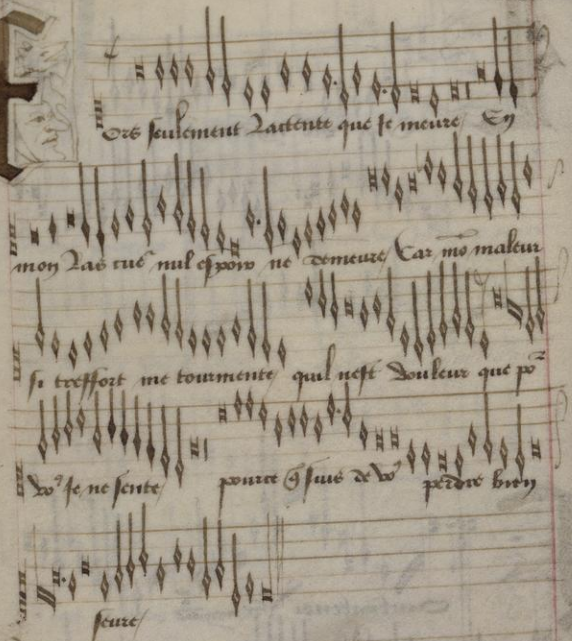 Fors seulement lactente que je meure / En
mon las cue^r nul espoir ne demeure / Car mō maleur
si tresfort me tourmente / quil nest douleur que po^r
vo^s Je ne sente / pource q̄ suis de vo^s perdre bien
seure /